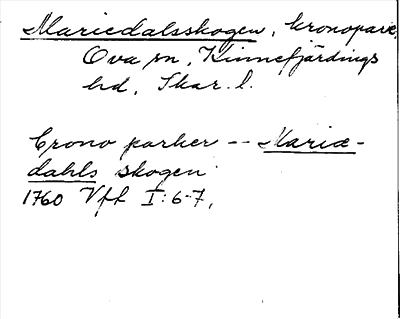 Mariedalsskogen, kronopark,
Ova sn, Kinnefjärdings
hd, Skar. l.
Crono parker -- Mariæ-
dahls skogen
1760 Vff I:6-7,